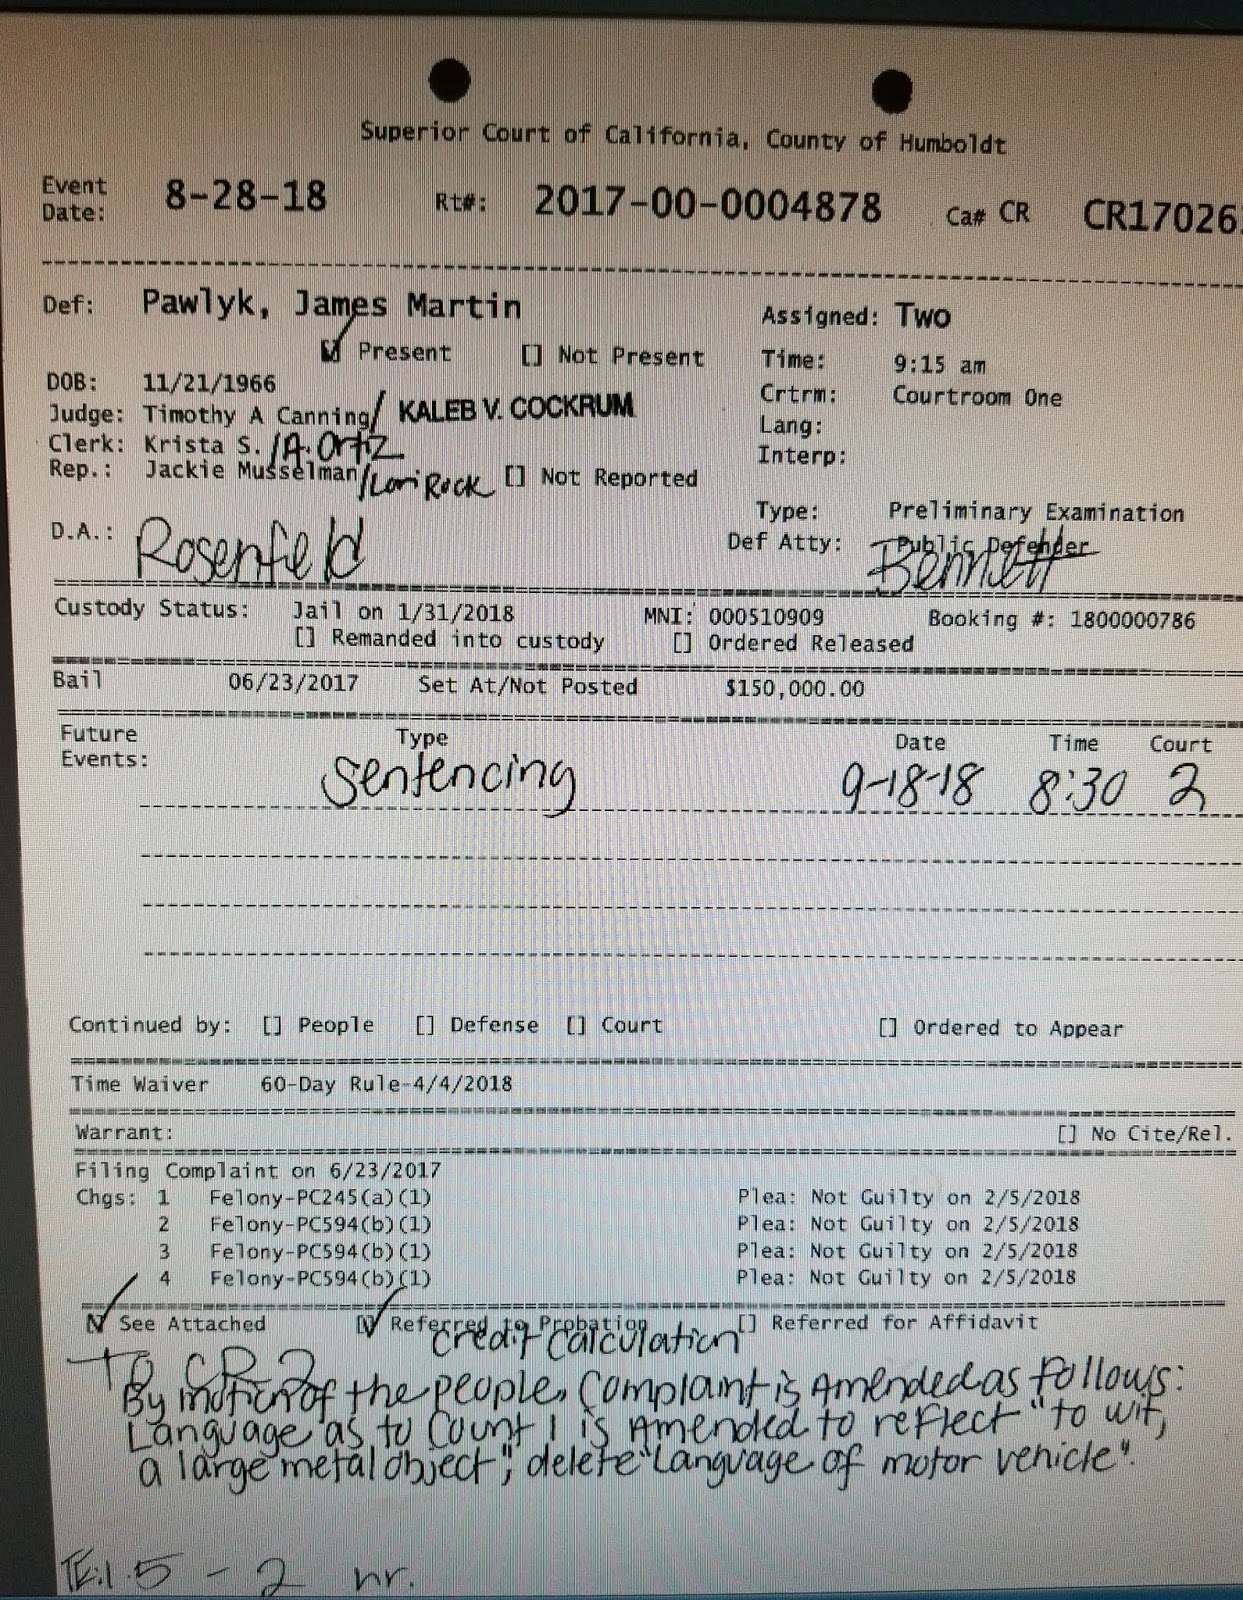 Superior Court of California, County of Humboldt
Event Date: 8-28-18 Rt#: 2017-00-0004878 Ca# CR CR17026
Def: Pawlyk, James Martin Assigned: Two
[✓] Present [] Not Present Time: 9:15 am
DOB: 11/21/1966 Crtrm: Courtroom One
Judge: Timothy A Canning/ KALEB V. COCKRUM Lang:
Clerk: Krista S./A. Ortiz Interp:
Rep.: Jackie Musselman/Lori Rock [] Not Reported
Type: Preliminary Examination
D.A.: Rosenfeld Def Atty: Public Defender Bennett
Custody Status: Jail on 1/31/2018 MNI: 000510909 Booking #: 1800000786
[] Remanded into custody [] Ordered Released
Bail 06/23/2017 Set At/Not Posted $150,000.00
Future Events: Type Date Time Court
Sentencing 9-18-18 8:30 2
Continued by: [] People [] Defense [] Court [] Ordered to Appear
Time Waiver 60-Day Rule-4/4/2018
Warrant: [] No Cite/Rel.
Filing Complaint on 6/23/2017
Chgs: 1 Felony-PC245(a)(1) Plea: Not Guilty on 2/5/2018
2 Felony-PC594(b)(1) Plea: Not Guilty on 2/5/2018
3 Felony-PC594(b)(1) Plea: Not Guilty on 2/5/2018
4 Felony-PC594(b)(1) Plea: Not Guilty on 2/5/2018
[✓] See Attached [✓] Referred to Probation [] Referred for Affidavit
Credit Calculation
To CR 2
By motion of the people, Complaint is Amended as follows:
Language as to Count 1 is Amended to reflect "to wit,
a large metal object", delete "Language of motor vehicle".
TE: 1.5 - 2 hr.